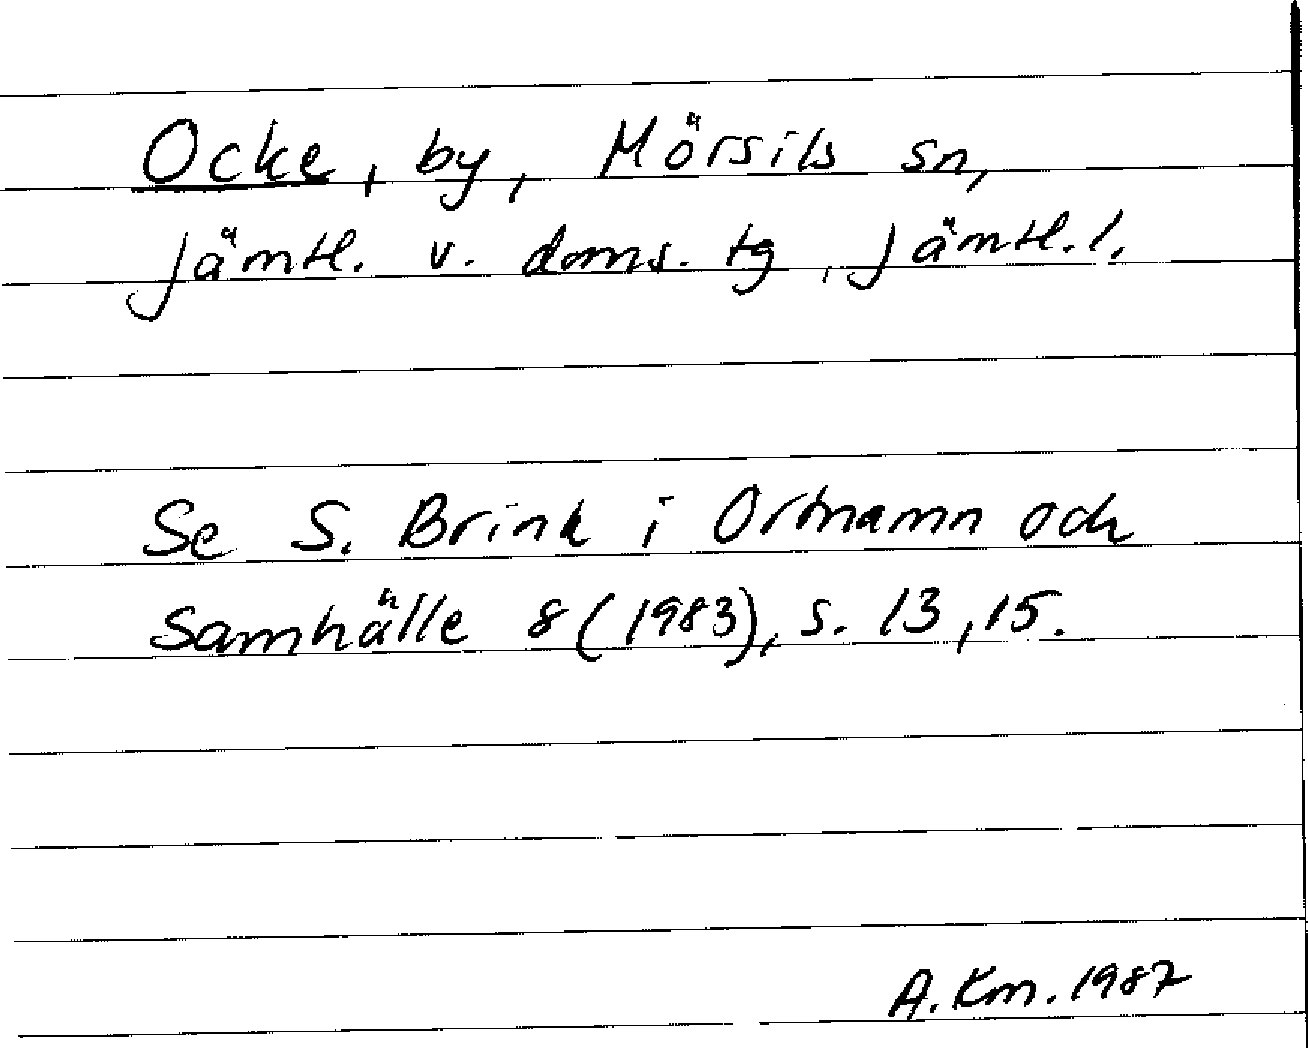 Ocke, by, Mörsils sn,
Jämtl. v. doms. tg, Jämtl. l.
Se S. Brink i Ortnamn och
samhälle 8 (1983), s. 13, 15.
A. Km. 1987